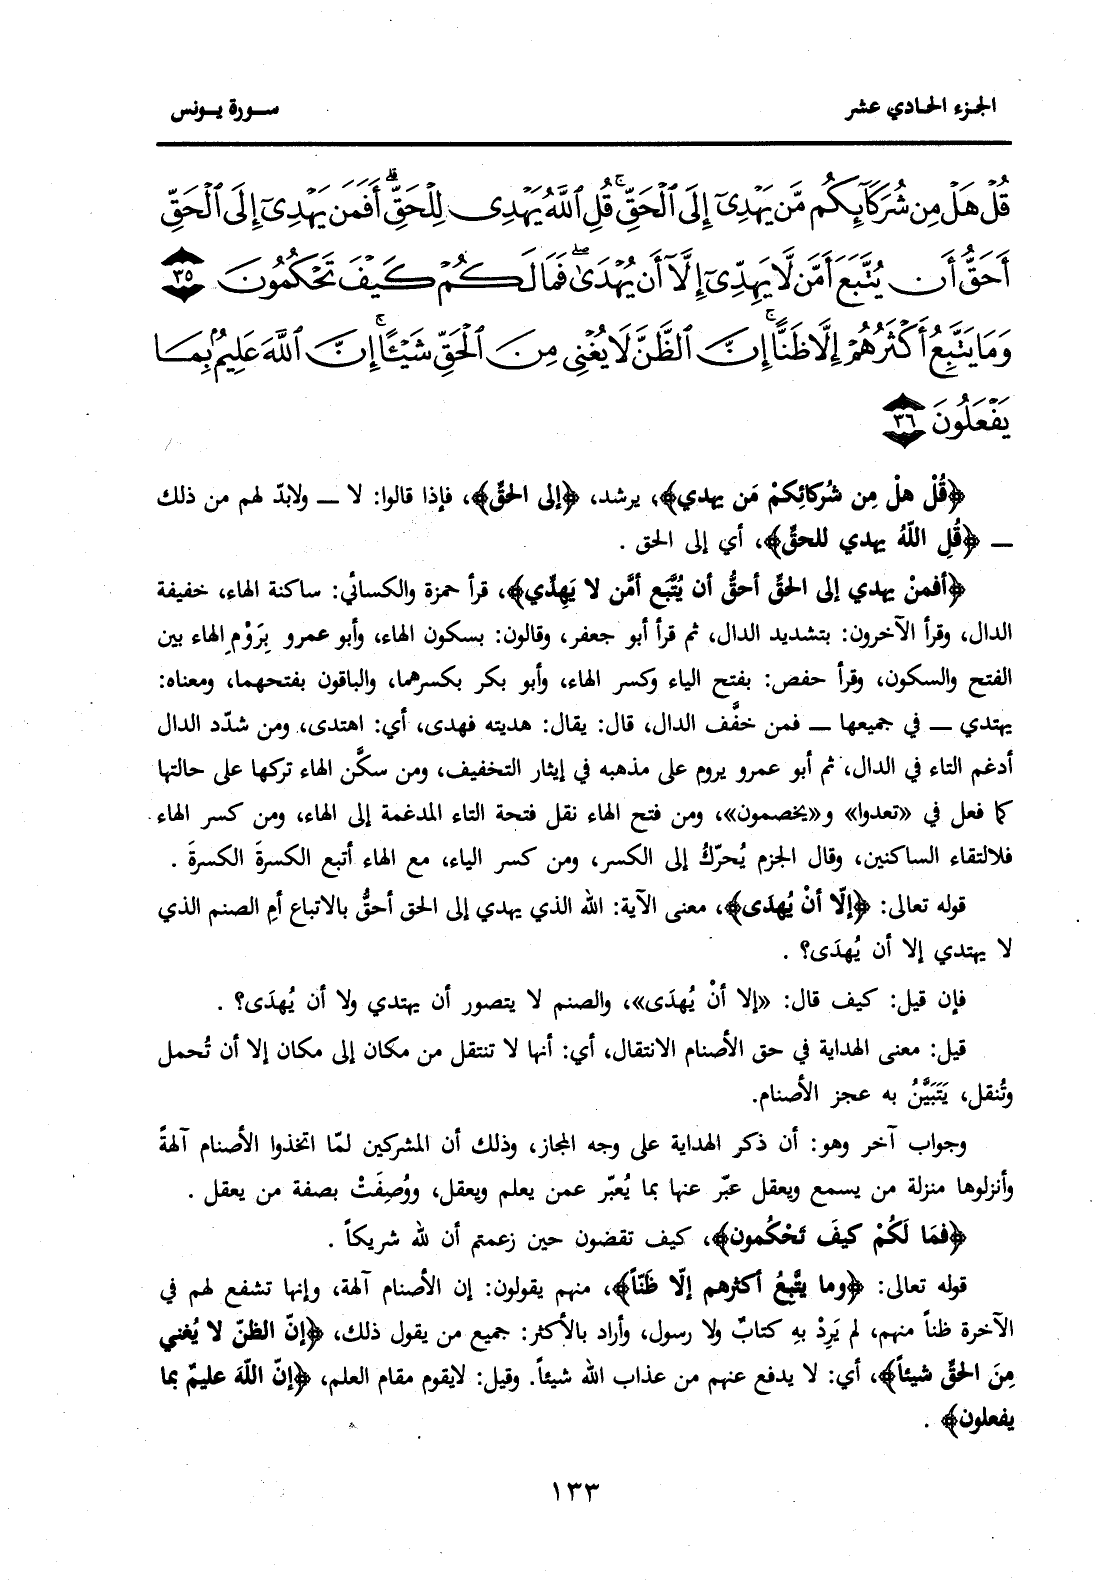 الجزء الحادي عشر
سورة يونس
قُلْ هَلْ مِن شُرَكَآئِكُم مَّن يَهْدِىٓ إِلَى ٱلْحَقِّ ۚ قُلِ ٱللَّهُ يَهْدِى لِلْحَقِّ ۗ أَفَمَن يَهْدِىٓ إِلَى ٱلْحَقِّ
أَحَقُّ أَن يُتَّبَعَ أَمَّن لَّا يَهِدِّىٓ إِلَّآ أَن يُهْدَىٰ ۖ فَمَا لَكُمْ كَيْفَ تَحْكُمُونَ ٣٥
وَمَا يَتَّبِعُ أَكْثَرُهُمْ إِلَّا ظَنًّا ۚ إِنَّ ٱلظَّنَّ لَا يُغْنِى مِنَ ٱلْحَقِّ شَيْـًٔا ۚ إِنَّ ٱللَّهَ عَلِيمٌۢ بِمَا
يَفْعَلُونَ ٣٦
﴿قُلْ هلْ مِن شُركائِكمْ مَن يهدي﴾، يرشد، ﴿إلى الحقّ﴾، فإذا قالوا: لا ــ ولابدّ لهم من ذلك
ــ ﴿قُلِ اللّهُ يهدي للحقّ﴾، أي إلى الحق .
﴿أفمنْ يهدي إلى الحقّ أحقُّ أن يُتَّبع أمَّن لا يَهِدِّي﴾، قرأ حمزة والكسائي: ساكنة الهاء، خفيفة
الدال، وقرأ الآخرون: بتشديد الدال، ثم قرأ أبو جعفر، وقالون: بسكون الهاء، وأبو عمرو بِرَوْمِ الهاء بين
الفتح والسكون، وقرأ حفص: بفتح الياء وكسر الهاء، وأبو بكر بكسرهما، والباقون بفتحهما، ومعناه:
يهتدي ــ في جميعها ــ فمن خفَّف الدال، قال: يقال: هديته فهدى، أي: اهتدى، ومن شدّد الدال
أدغم التاء في الدال، ثم أبو عمرو يروم على مذهبه في إيثار التخفيف، ومن سكَّن الهاء تركها على حالتها
كما فعل في «تعدوا» و«يخصمون»، ومن فتح الهاء نقل فتحة التاء المدغمة إلى الهاء، ومن كسر الهاء
فلالتقاء الساكنين، وقال الجزم يُحرّكُ إلى الكسر، ومن كسر الياء، مع الهاء أتبع الكسرةَ الكسرةَ .
قوله تعالى: ﴿إلّا أنْ يُهدَى﴾، معنى الآية: الله الذي يهدي إلى الحق أحقُّ بالاتباع أمِ الصنم الذي
لا يهتدي إلا أن يُهدَى؟ .
فإن قيل: كيف قال: «إلا أنْ يُهدَى»، والصنم لا يتصور أن يهتدي ولا أن يُهدَى؟ .
قيل: معنى الهداية في حق الأصنام الانتقال، أي: أنها لا تنتقل من مكان إلى مكان إلا أن تُحمل
وتُنقل، يَتَبَيَّنُ به عجز الأصنام.
وجواب آخر وهو: أن ذكر الهداية على وجه المجاز، وذلك أن المشركين لمّا اتخذوا الأصنام آلهةً
وأنزلوها منزلة من يسمع ويعقل عبّر عنها بما يُعبّر عمن يعلم ويعقل، ووُصِفَتْ بصفة من يعقل .
﴿فمَا لَكُمْ كيفَ تَحْكُمون﴾، كيف تقضون حين زعمتم أن لله شريكاً .
قوله تعالى: ﴿وما يتَّبِعُ أكثرهم إلّا ظَنّاً﴾، منهم يقولون: إن الأصنام آلهة، وإنها تشفع لهم في
الآخرة ظناً منهم، لم يَرِدْ بهِ كتابٌ ولا رسول، وأراد بالأكثر: جميع من يقول ذلك، ﴿إنّ الظنّ لا يُغني
مِنَ الحقّ شيئاً﴾، أي: لا يدفع عنهم من عذاب الله شيئاً. وقيل: لايقوم مقام العلم، ﴿إنّ اللّهَ عليمٌ بما
يفعلون﴾ .
١٣٣